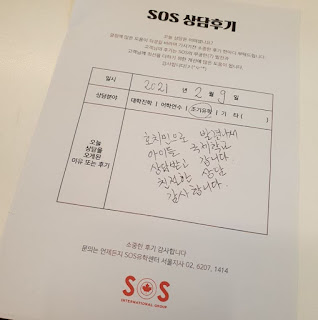 SOS 상담후기
오늘 상담은 어떠셨나요?
감사합니다(*^o^*)
일시 2021 년 2 월 9 일
상담분야 대학진학 | 어학연수 | 조기유학 | 기타 ( )
오늘
상담을
오게된
이유 또는 후기
호치민으로 발령나서
아이들 국제학교
상담받고 갑니다.
친절한 상담
감사합니다.
소중한 후기 감사합니다
문의는 언제든지 SOS유학센터 서울지사 02. 6207. 1414
SOS
INTERNATIONAL GROUP